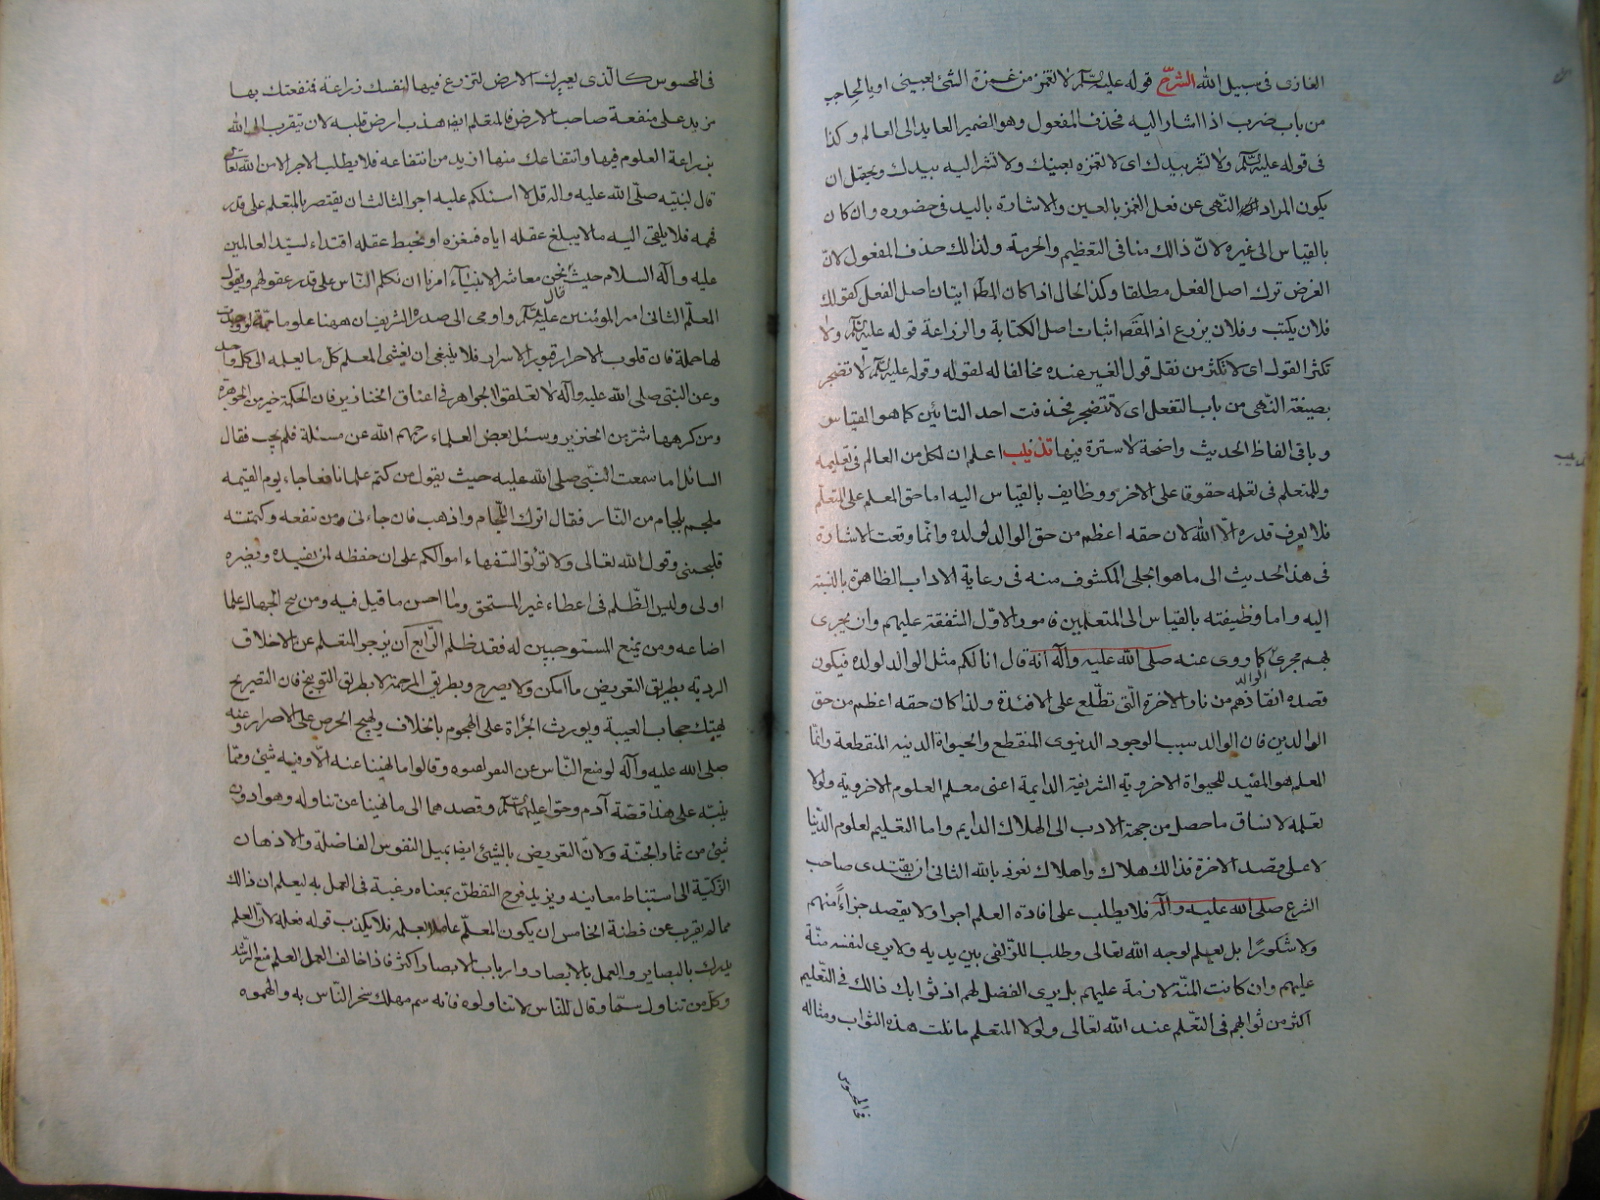 الغازى فى سبيل الله الشرح قوله عليه السلم لا تغمز من غمزة الشئ بعينى او بالحاجب
من باب ضرب اذا اشار اليه فحذف المفعول وهو الضمير العايد الى العالم وكذا
فى قوله عليه السلم ولا تشر بيدك اى لا تغمزه بعينك ولا تشر اليه بيدك ويحتمل ان
يكون المراد النهى عن فعل الغمز بالعين والاشارة باليد فى حضوره وان كان
بالقياس الى غيره لانّ ذالك منافى التعظيم والحرمة ولذالك حذف المفعول لانّ
الغرض ترك اصل الفعل مطلقا وكذ الحال اذا كان المط اتيان اصل الفعل كقولك
فلان يكتب وفلان يزرع اذ المقصد اثبات اصل الكتابة والزراعة قوله عليه السلم ولا
تكثر القول اى لا تكثر من نقل قول الغير عنده مخالفا له لقوله وقوله عليه السلم لا تضجر
بصيغة النّهى من باب التفعل اى لا تتضجر فحذفت احد التائين كما هو القياس
وباقى الفاظ الحديث واضحة لا سترة فيها تذنيب اعلم ان لكل من العالم فى تعليمه
وللمتعلم فى تعلمه حقوقا على الاخر ووظايف بالقياس اليه اما حق المعلم على المتعلم
فلا يعرف قدره الّا الله لان حقه اعظم من حق الوالد لولده وانّما وقعت الاشارة
فى هذ الحديث الى ما هو الجلى المكشوف منه فى رعاية الاداب الظاهرة بالنسبة
اليه واما وظيفته بالقياس الى المتعلمين فامور الاوّل الشفقة عليهم وان يجرى
بهم مجرى كما روى عنه صلى الله عليه وآله انه قال انا لكم مثل الوالد لولده فيكون
قصده انقاذهم من نار الاخرة الّتى تطّلع على الافئدة ولذا كان حقه اعظم من حق
الوالدين فان الوالد سبب الوجود الدنيوى المنقطع والحيواة الدنيه المنقطعة وانّما
المعلم هو المفيد للحيواة الاخروية الشريفة الدايمة اعنى معلم العلوم الاخروية ولولا
تعلمه لانساق ما حصل من جهة الادب الى الهلاك الدايم واما التعليم لعلوم الدّنيا
لا على قصد الاخرة فذالك هلاك واهلاك نعوذ بالله الثانى ان يقتدى صاحب
الشرع صلى الله عليه وآله فلا يطلب على افادة العلم اجرا ولا يقصد جزاءً منهم
ولا شكورًا بل يعلم لوجه الله تعالى وطلبا للزّلفى بين يديه ولا يرى لنفسه منّة
عليهم وان كانت المنّة لازمة عليهم بل يرى الفضل لهم اذ ثوابك ذالك فى التّعليم
اكثر من ثوابهم فى التعّلم عند الله تعالى ولولا المتعلم ما نلت هذه الثواب ومثاله
فى المحسوس
فى المحسوس كالّذى يعيرك الارض لتزرع فيها لنفسك زراعة فنفعتك بها
يزيد على منفعة صاحب الارض فالمتعلم ايضا هذب ارض قلبه لان تتقرب الى الله
بزراعة العلوم فيها وانتفاعك منها ازيد من انتفاعه فلا يطلب الاجر الا من الله تعالى
قال لنبيّه صلّى الله عليه واله قل لا اسئلكم عليه اجرا الثالث ان يقتصر بالمتعلم على قدر
فهمه فلا يلقى اليه ما لا يبلغ عقله اياه فينفره او يخبط عقله اقتداء لسيّد العالمين
عليه وآله السلام حيث نحن معاشر الانبيآء امرنا ان نكلم النّاس على قدر عقولهم ويقول
المعلّم الثانى امير المؤمنين عليه السلم قال واومى الى صدره الشريف ان ههنا علوما جمة لو وجدت
لها حملة فان قلوب الاحرار قبور الاسرار فلا ينبغى ان يفشى المعلم كلّ ما يعلمه الى كل واحد
وعن النبى صلى الله عليه وآله لا تعلقوا الجواهر فى اعناق الخنازير فان الحكمة خير من الجوهرة
ومن كرهها شرّ من الخنزير وسئل بعض العلماء رحمهم الله عن مسئلة فلم يجب فقال
السائل اما سمعت النّبى صلى الله عليه حيث يقول من كتم علما نافعا جاء يوم القيمه
ملجم بلجام من النّار فقال اترك اللّجام واذهب فان جاءنى من نفعه وكتمته
فليلجمنى وقول الله تعالى ولا تؤتوا السّفهاء اموالكم على ان حفظه لمن يفيده ويضره
اولى وليس الظّلم فى اعطاء غير المستحق وما احسن ما قيل فيه ومن منح الجهال علما
اضاعه ومن يمنع المستوجبين له فقد ظلم الرّابع أن يزجر المتعلم عن الاخلاق
الرديه بطريق التعريض ما أمكن ولا يصرح وبطريق الرحمة لا بطريق التوبيخ فان التصريح
يهتك حجاب الهيبة ويورث الجرأة على الهجوم بالخلاف ويهيج الحرص على الاصرار وعنه
صلى الله عليه وآله لو منع النّاس عن البعر لفتوه وقالوا ما نهينا عنه الّا وفيه شئ وممّا
ينبّه على هذا قصّة آدم وحوّا عليهما السلم وقصدهما الى ما نهينا عن تناوله وهو ادون
شئ من ثمار الجنّة ولانّ التعريض بالشئ ايضا يميل النفوس الفاضلة والاذهان
الزّكيّة الى استنباط معانيه ويزيد فرح التفطّن بمعناه رغبة فى العمل به ليعلم ان ذالك
مما لم يقرب عن فطنة الخامس ان يكون المعلّم عاملا بعلمه فلا يكذب قوله فعله لانّ العلم
يدرك بالبصاير والعمل بالابصار وارباب الابصار اكثر فاذا خالف العمل العلم منع الرّشد
وكلّ من تناول سمّا وقال للنّاس لا تناولوه فانه سم مهلك سخر النّاس به واتهموه